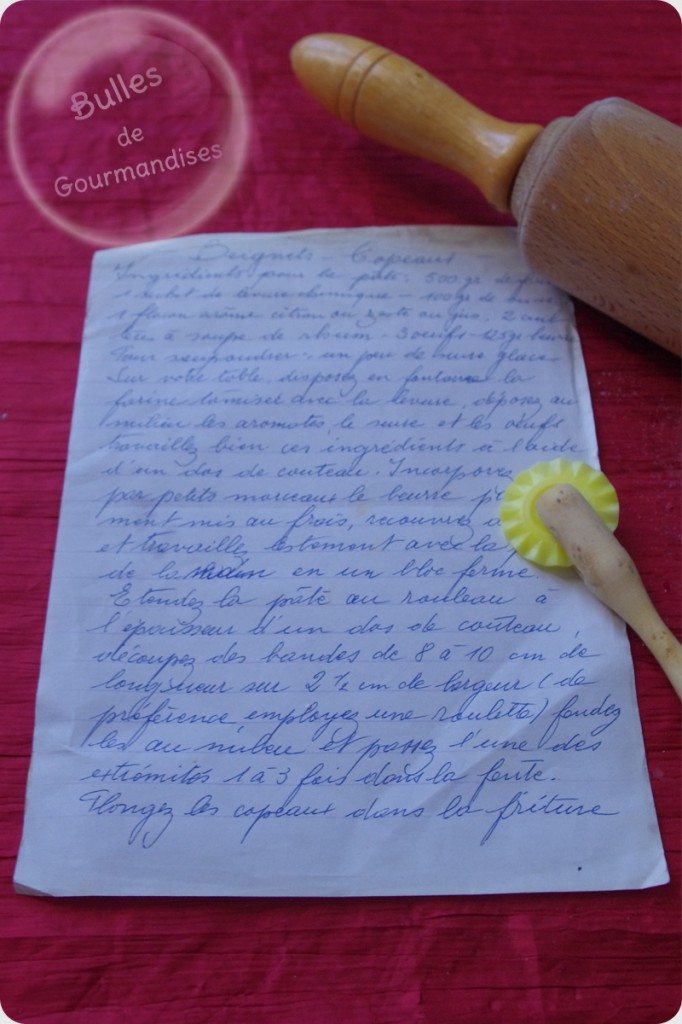 Bulles
de
Gourmandises
Beignets - Copeaux -
Ingrédients pour la pâte : 500 gr de
de levure chimique - 100 gr de
1 flacon arôme citron ou zeste au gus. 2
à soupe de rhum - 3 oeufs - 125 gr beurre
Pour saupoudrer : un peu de sucre glace
Sur votre table, disposez en fontaine la
farine tamisée avec la levure, déposez au
milieu les aromates, le sucre et les oeufs
travaillez bien ces ingrédients à l'aide
d'un dos de couteau. Incorporez
par petits morceaux le beurre
ment mis au frais, recouvrez
et travaillez lestement avec la
de la main en un bloc ferme.
Etendez la pâte au rouleau à
l'épaisseur d'un dos de couteau,
découpez des bandes de 8 à 10 cm de
longueur sur 2 ½ cm de largeur (de
préférence employez une roulette) fendez
les au milieu et passez l'une des
extrémités 1 à 3 fois dans la fente.
Plongez les copeaux dans la friture